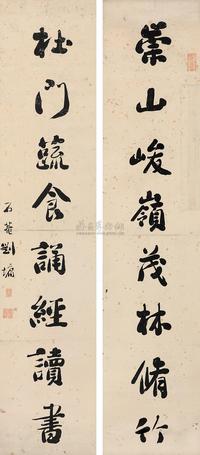 崇山峻嶺茂林脩竹
杜門蔬食誦經讀書
石菴劉墉